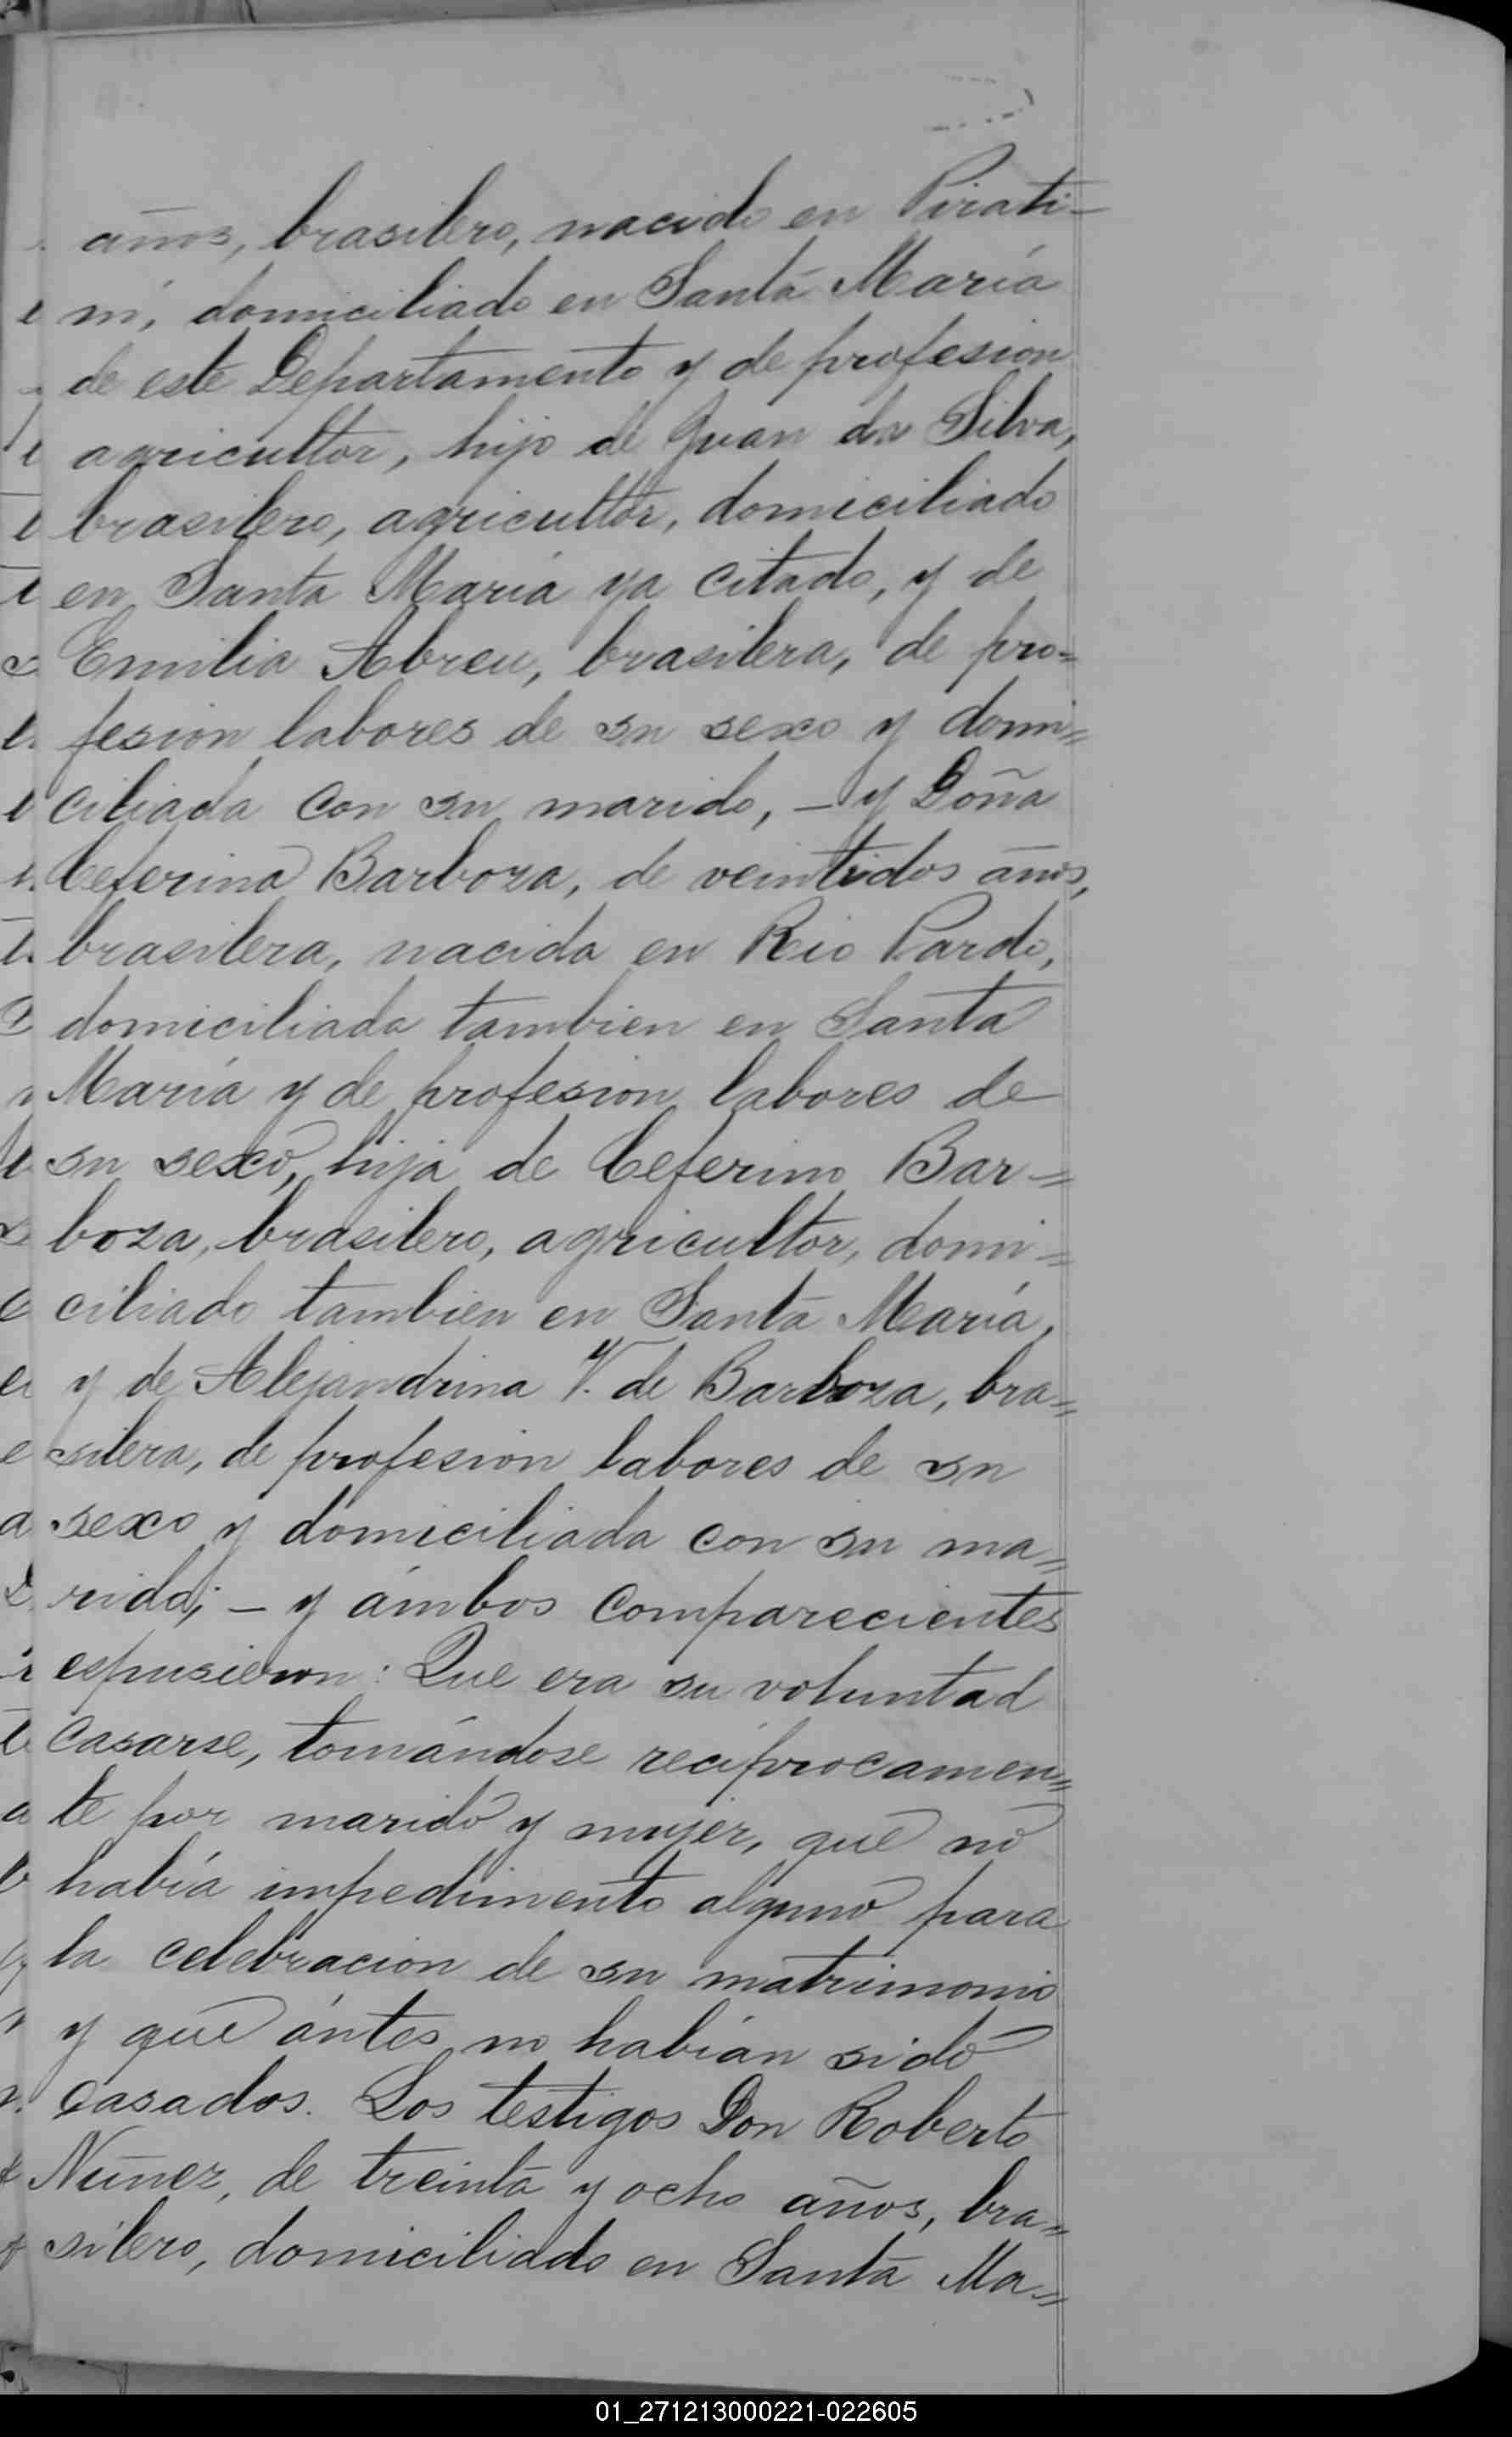 años, brasilero, nacido en Pirati-
ní, domiciliado en Santa María
de este Departamento y de profesion
agricultor, hijo de Juan da Silva,
brasilero, agricultor, domiciliado
en Santa María ya citado, y de
Emilia Abreu, brasilera, de pro=
fesion labores de su sexo y domi=
ciliada con su marido, - y Doña
Ceferina Barboza, de veintidos años,
brasilera, nacida en Rio Pardo,
domiciliada tambien en Santa
María y de profesion labores de
su sexo, hija de Ceferino Bar=
boza, brasilero, agricultor, domi=
ciliado tambien en Santa María,
y de Alejandrina V. de Barboza, bra=
silera, de profesion labores de su
sexo y domiciliada con su ma=
rido; - y ámbos comparecientes
espusieron: Que era su voluntad
casarse, tomándose recíprocamen=
te por marido y mujer, que no
había impedimento alguno para
la celebracion de su matrimonio
y que ántes no habían sido
casados. Los testigos Don Roberto
Nuñez, de treinta y ocho años, bra=
silero, domiciliado en Santa Ma=
01_271213000221-022605